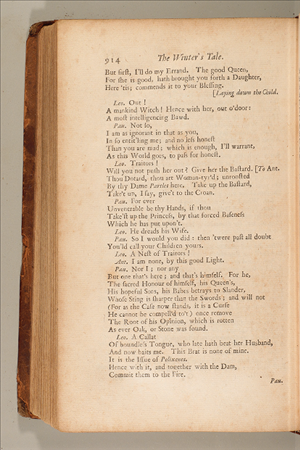 914 The Winter's Tale.
But first, I'll do my Errand. The good Queen,
For she is good, hath brought you forth a Daughter,
Here 'tis; commends it to your Blessing.
[Laying down the Child.
Leo. Out!
A mankind Witch! Hence with her, out o'door:
A most intelligencing Bawd.
Pau. Not so,
I am as ignorant in that as you,
In so entit'ling me; and no less honest
Than you are mad; which is enough, I'll warrant,
As this World goes, to pass for honest.
Leo. Traitors!
Will you not push her out? Give her the Bastard. [To Ant.
Thou Dotard, thou art Woman-tyr'd; unroosted
By thy Dame Partlet here. Take up the Bastard,
Take't up, I say, give't to the Croan.
Pau. For ever
Unvenerable be thy Hands, if thou
Take'st up the Princess, by that forced Baseness
Which he has put upon't.
Leo. He dreads his Wife.
Pau. So I would you did: then 'twere past all doubt
You'ld call your Children yours.
Leo. A Nest of Traitors!
Ant. I am none, by this good Light.
Pau. Nor I; nor any
But one that's here; and that's himself. For he,
The sacred Honour of himself, his Queen's,
His hopeful Sons, his Babes betrays to Slander,
Whose Sting is sharper than the Swords; and will not
(For as the Case now stands, it is a Curse
He cannot be compell'd to't) once remove
The Root of his Opinion, which is rotten
As ever Oak, or Stone was sound.
Leo. A Callat
Of boundless Tongue, who late hath beat her Husband,
And now baits me. This Brat is none of mine.
It is the Issue of Polixenes.
Hence with it, and together with the Dam,
Commit them to the Fire.
Pau.